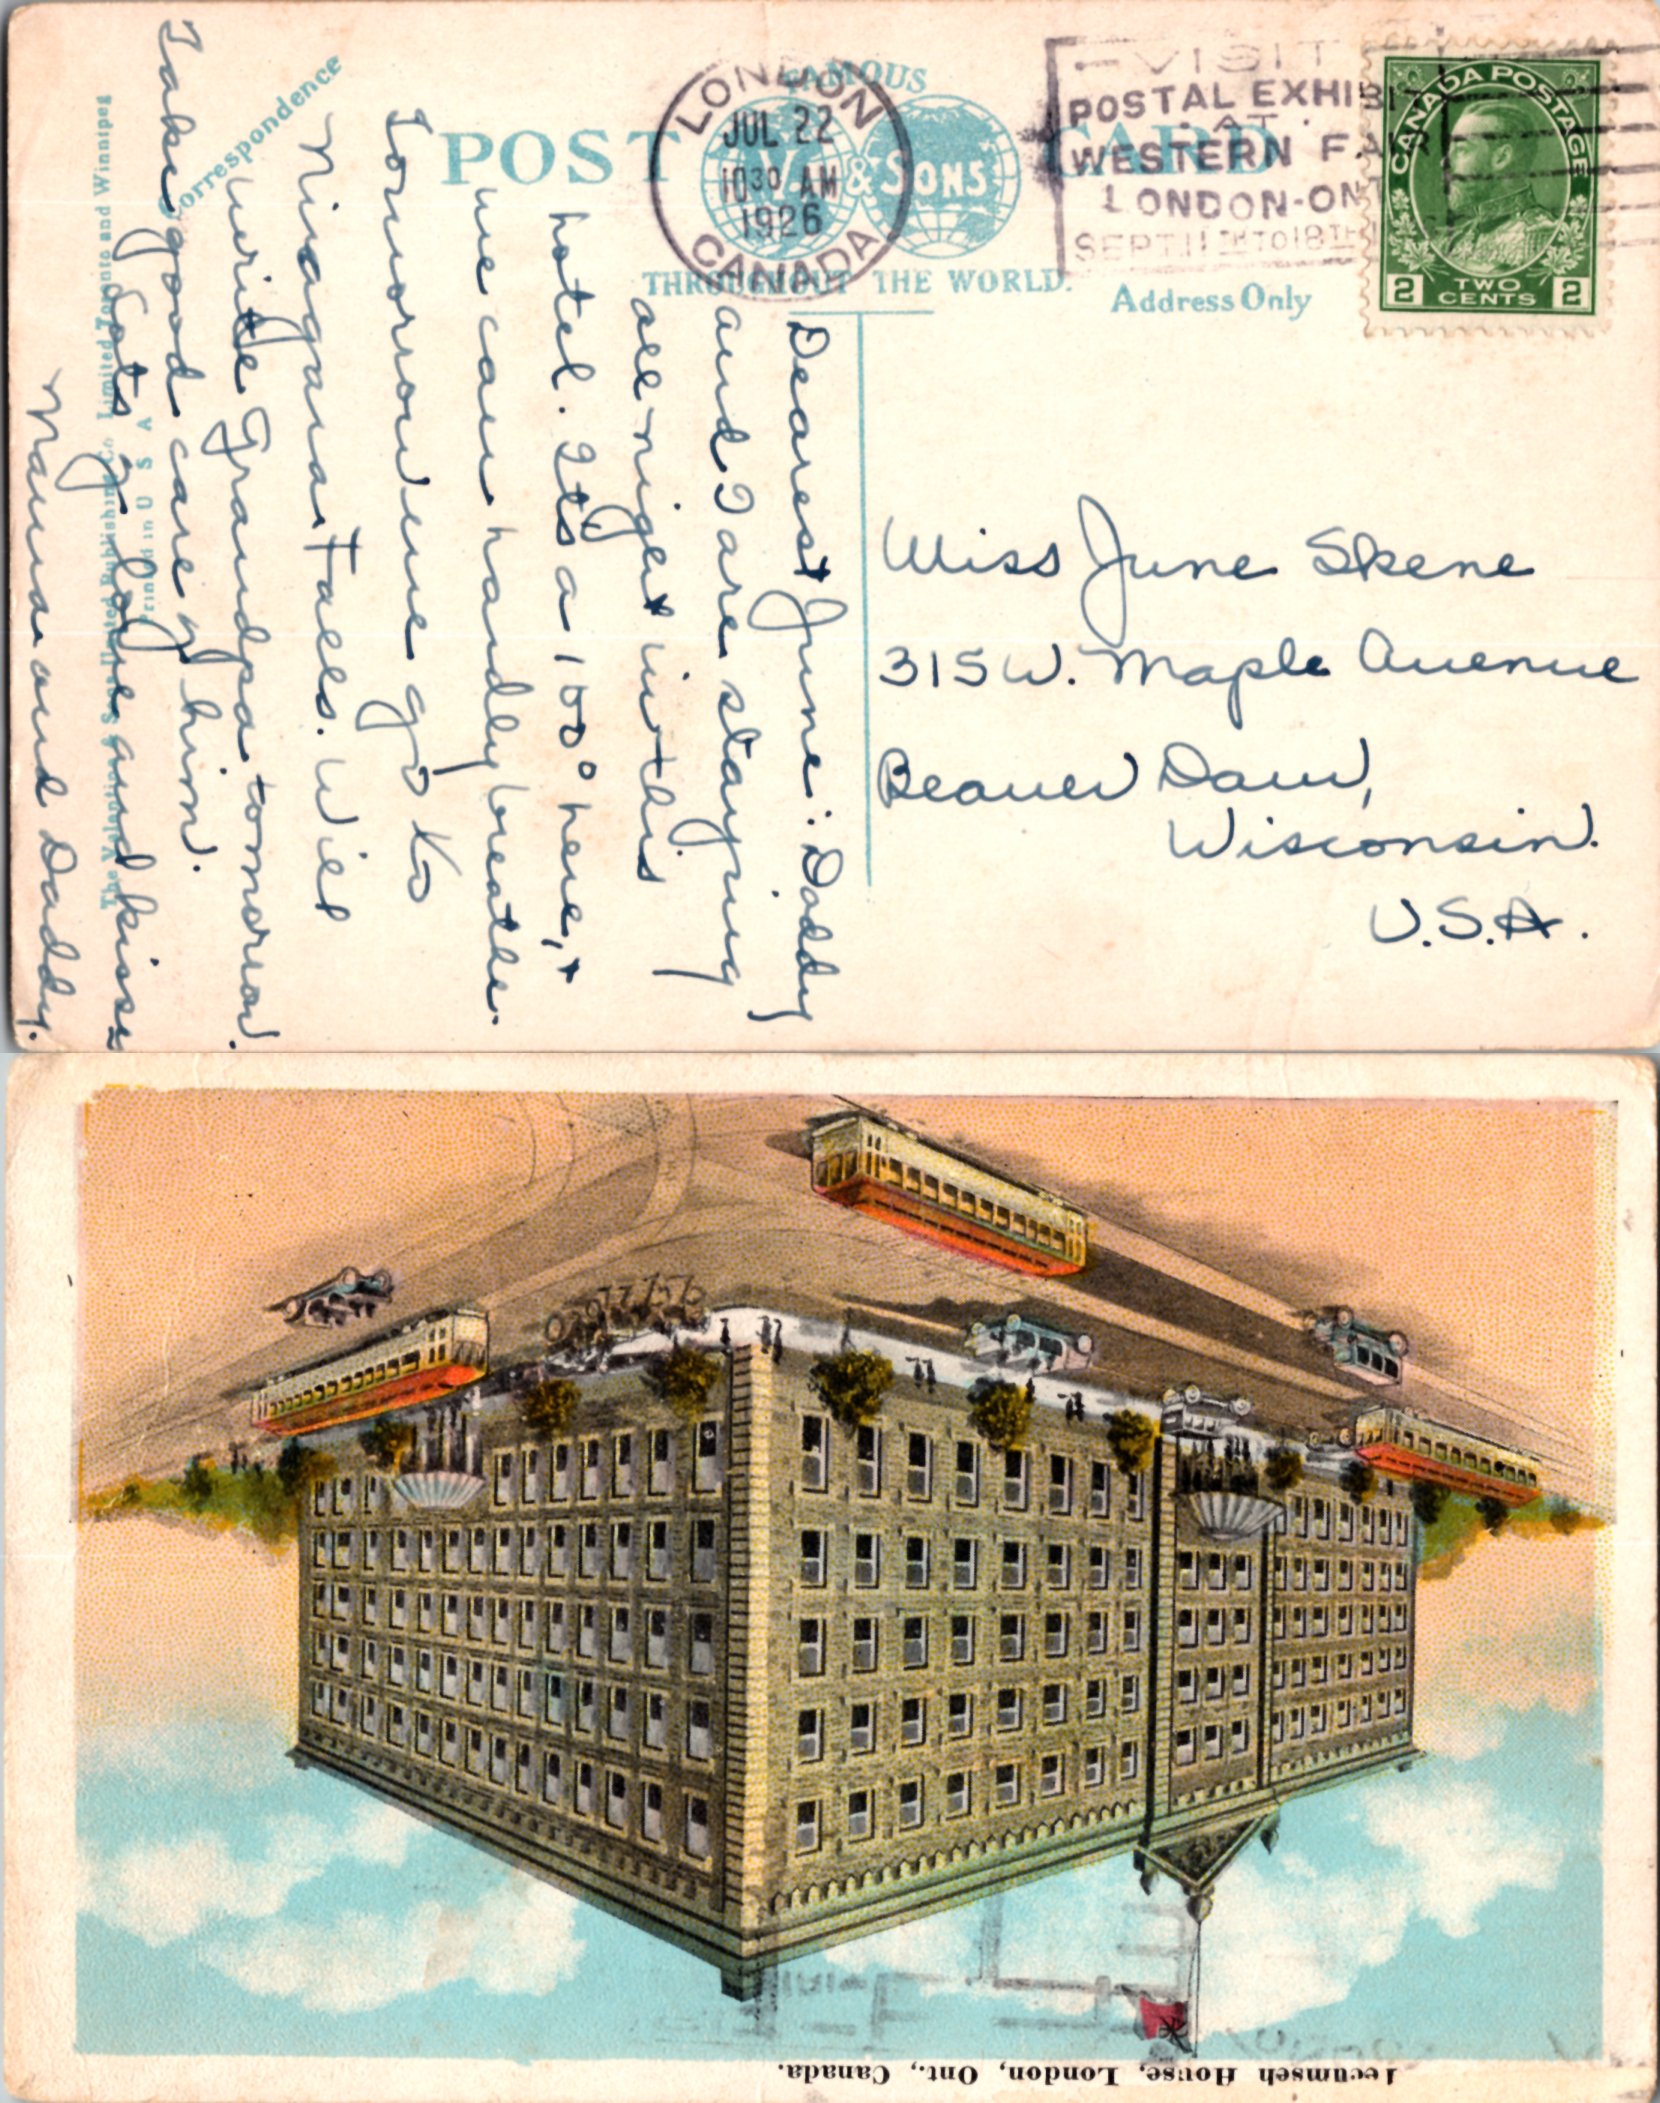 FAMOUS
POST CARD
& SONS
THROUGHOUT THE WORLD.
Address Only
Correspondence
LONDON
JUL 22
10 30 AM
1926
CANADA
VISIT
POSTAL EXHIBIT
AT
WESTERN FAIR
LONDON-ONT
SEPT. 11TH TO 18TH
CANADA POSTAGE
2 TWO CENTS 2
Dearest June: Daddy
and I are staying
all night in this
hotel. Its a 100° here, +
we can hardly breathe.
Tomorrow we go to
Niagara Falls. Will
write Grandpa tomorrow.
Take good care of him.
Lots of love and kisses
Mama and Daddy.
Miss June Skene
315 W. Maple Avenue
Beaver Dam,
Wisconsin.
U.S.A.
The Valentine & Sons United Publishing Co. Limited Toronto and Winnipeg
Printed in U S A
Tecumseh House, London, Ont., Canada.